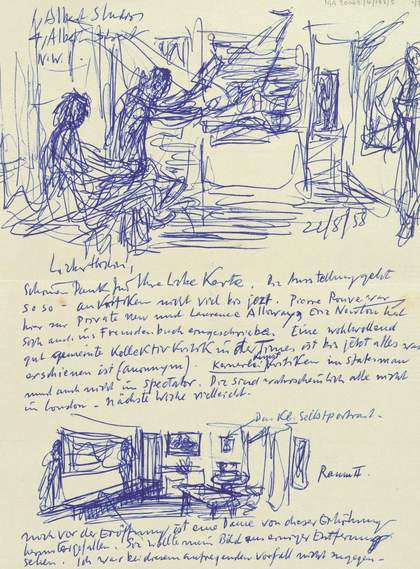 1, Albert Studios
4, Albert
N.W.1
22/8/58
Lieber
Schönen Dank für Ihre liebe Karte. Die Ausstellung geht
so so – an Kritiken nicht viel bis jetzt. Pierre Rouve war
hier zur Private View und Laurence Alloway. Eric Newton hat
sich auch ins Fremdenbuch eingeschrieben. Eine wohlwollend
gut gemeinte Kollektiv Kritik in der Times ist bis jetzt alles was
erschienen ist (anonym). Kunst Kritiken im Statesman
und auch nicht im Spectator. Die sind wahrscheinlich alle nicht
in London – nächste Woche vielleicht.
Das kl. Selbstportrait.
Raum II.
noch vor der Eröffnung ist eine Dame von dieser Erhöhung
heruntergefallen. Sie wollte mein Bild aus einiger Entfernung
sehen. Ich war bei diesem aufregenden Vorfall nicht zugegen –